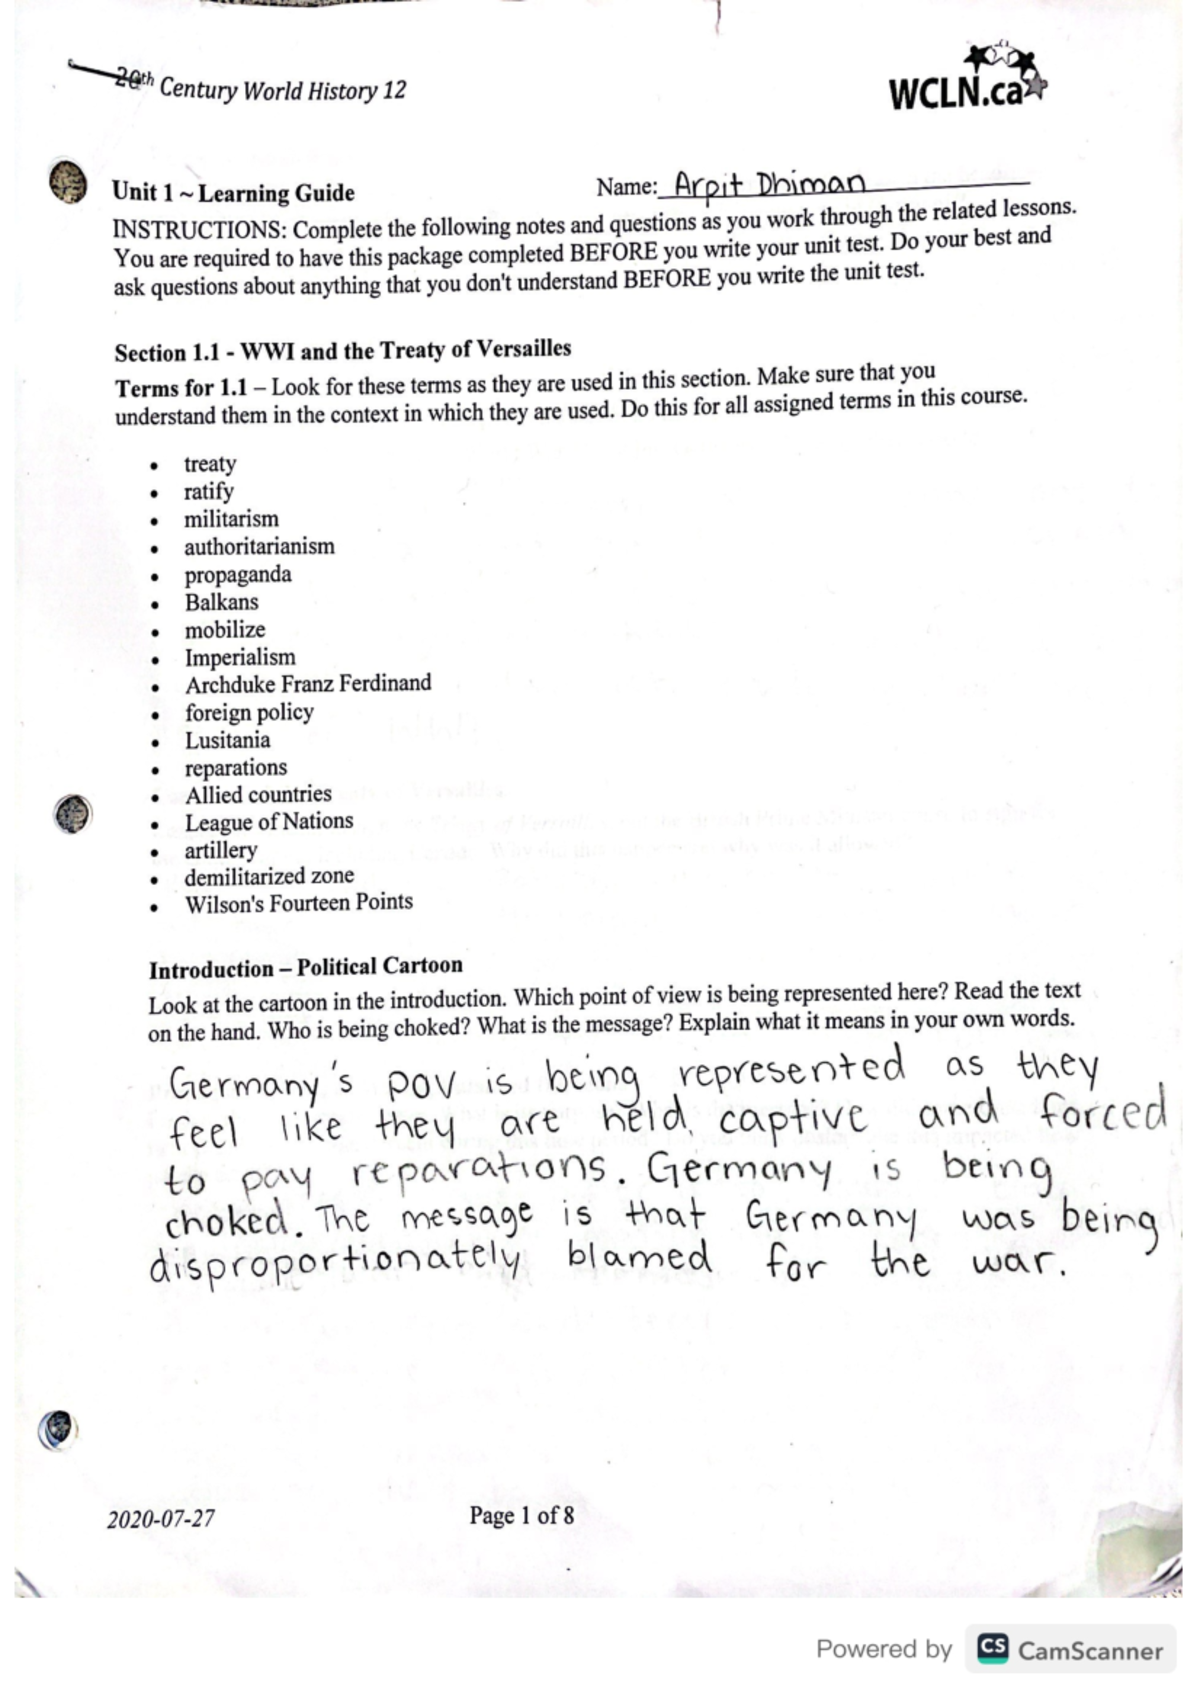 20th Century World History 12
WCLN.ca
Unit 1 ~ Learning Guide Name: Arpit Dhiman
INSTRUCTIONS: Complete the following notes and questions as you work through the related lessons.
You are required to have this package completed BEFORE you write your unit test. Do your best and
ask questions about anything that you don't understand BEFORE you write the unit test.
Section 1.1 - WWI and the Treaty of Versailles
Terms for 1.1 – Look for these terms as they are used in this section. Make sure that you
understand them in the context in which they are used. Do this for all assigned terms in this course.
• treaty
• ratify
• militarism
• authoritarianism
• propaganda
• Balkans
• mobilize
• Imperialism
• Archduke Franz Ferdinand
• foreign policy
• Lusitania
• reparations
• Allied countries
• League of Nations
• artillery
• demilitarized zone
• Wilson's Fourteen Points
Introduction – Political Cartoon
Look at the cartoon in the introduction. Which point of view is being represented here? Read the text
on the hand. Who is being choked? What is the message? Explain what it means in your own words.
Germany's POV is being represented as they
feel like they are held captive and forced
to pay reparations. Germany is being
choked. The message is that Germany was being
disproportionately blamed for the war.
2020-07-27 Page 1 of 8
Powered by CS CamScanner